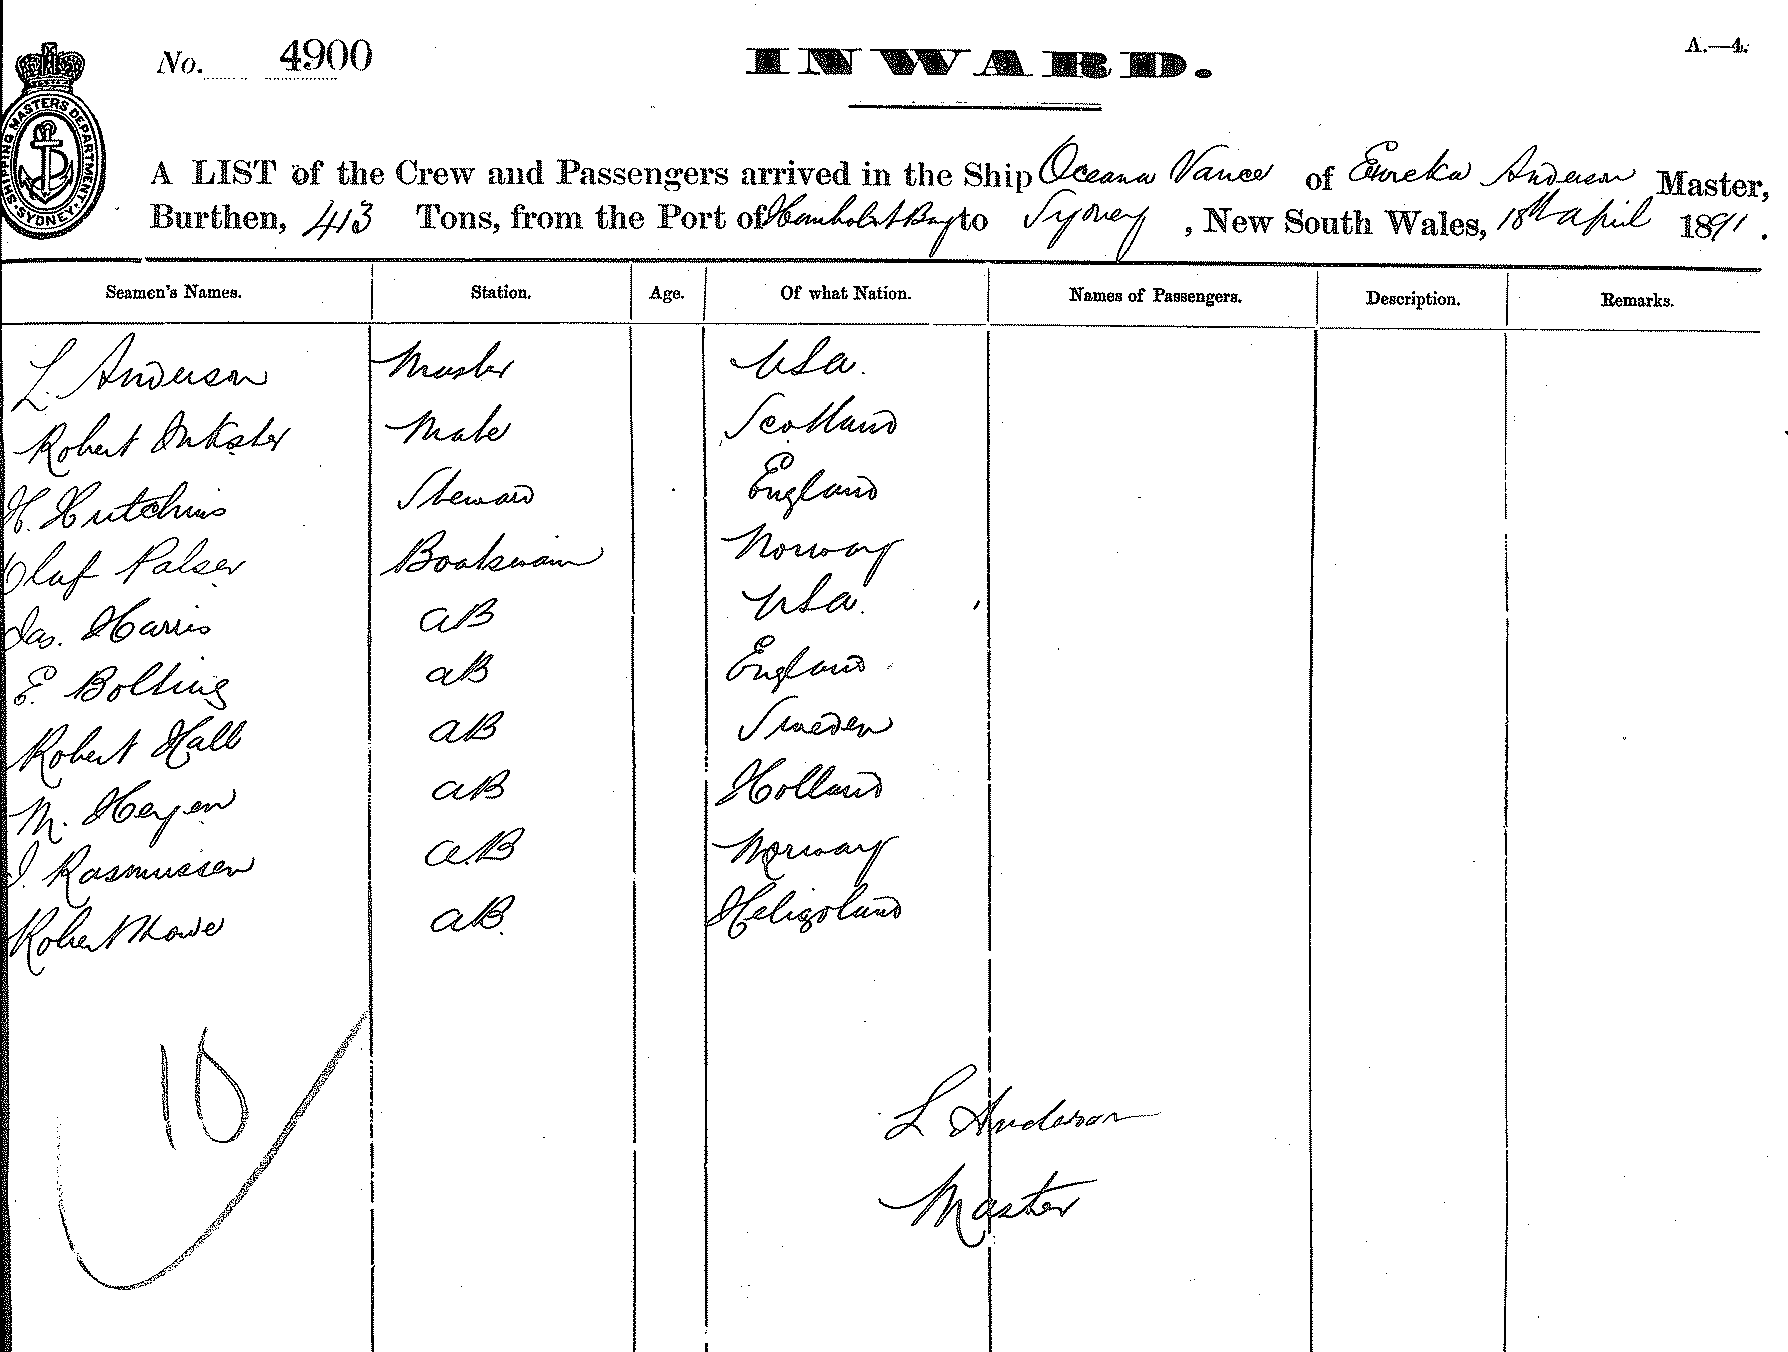 No. 4900 INWARD. A.—4.
SHIPPING MASTERS DEPARTMENT · SYDNEY ·
A LIST of the Crew and Passengers arrived in the Ship Oceana Vance of Eureka Anderson Master,
Burthen, 413 Tons, from the Port of Humboldt Bay to Sydney, New South Wales, 18th april 1891.
Seamen's Names. Station. Age. Of what Nation. Names of Passengers. Description. Remarks.
L. Anderson Master USa.
Robert Inkster Mate Scotland
H. Hutchins Steward England
Olaf Palser Boatswain Norway
Jas. Harris aB USa.
E. Bolting aB England
Robert Hall aB Sweden
M. Heyen aB Holland
J. Rasmussen aB Norway
Robert aB. Heligoland
10
L Anderson
Master